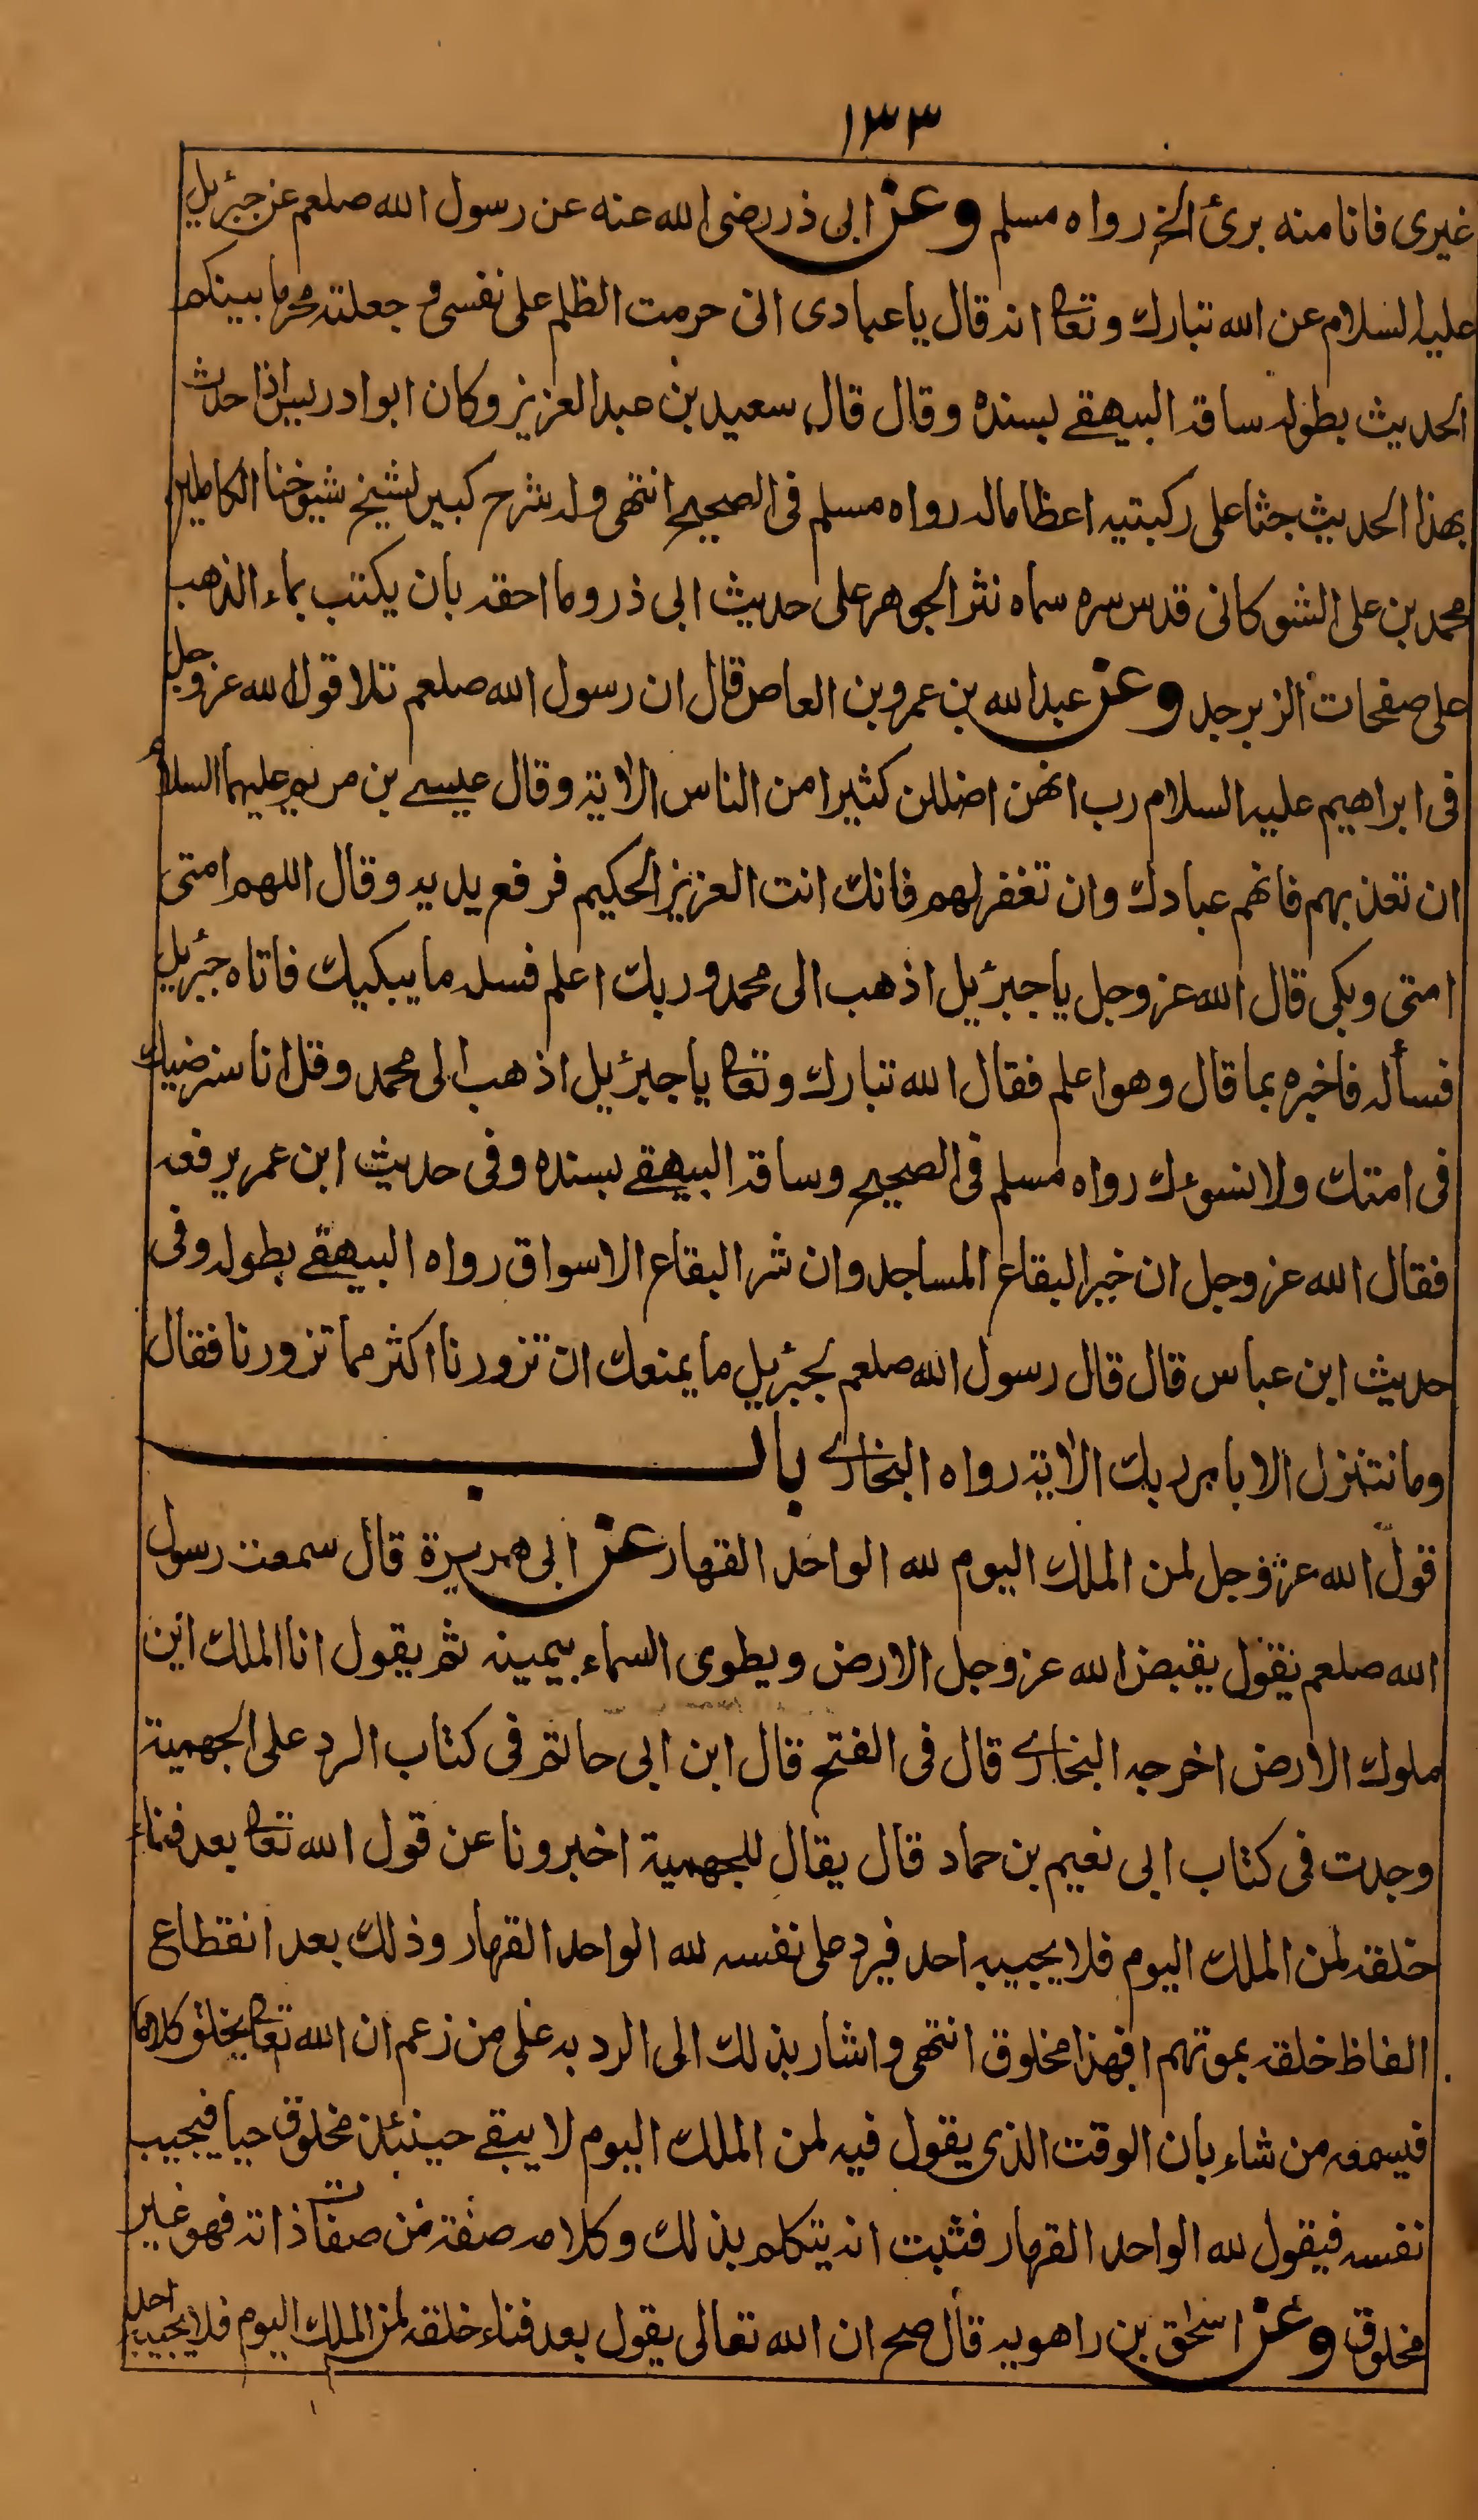 ١٣٣
غيرى فانا منه برئ الخ رواه مسلم وعن ابى ذر رضى الله عنه عن رسول الله صلعم عن جبرئيل
عليه السلام عن الله تبارك وتعا انه قال يا عبادى انى حرمت الظلم على نفسى و جعلته محرما بينكم
الحديث بطوله ساقه البيهقے بسنده وقال قال سعيد بن عبد العزيز وكان ابو ادريس اذا حدث
بهذا الحديث جثا على ركبتيه اعظاما له رواه مسلم فى الصحيح انتهى وله شرح كبير لشيخ شيوخنا الكاملين
محمد بن على الشوكانى قدس سره سماه نثر الجوهر على حديث ابى ذر وما احقه بان يكتب بماء الذهب
على صفحات الزبرجد وعن عبد الله بن عمرو بن العاص قال ان رسول الله صلعم تلا قول الله عز وجل
فى ابراهيم عليه السلام رب انهن اضللن كثيرا من الناس الاية وقال عيسے بن مريم عليهما السلام
ان تعذبهم فانهم عبادك وان تغفر لهم فانك انت العزيز الحكيم فرفع يديه وقال اللهم امتى
امتى وبكى قال الله عز وجل يا جبرئيل اذهب الى محمد وربك اعلم فسله ما يبكيك فاتاه جبرئيل
فسأله فاخبره بما قال وهو اعلم فقال الله تبارك وتعا يا جبرئيل اذهب الى محمد وقل انا سنرضيك
فى امتك ولا نسوءك رواه مسلم فى الصحيح وساقه البيهقے بسنده وفى حديث ابن عمر يرفعه
فقال الله عز وجل ان خير البقاع المساجد وان شر البقاع الاسواق رواه البيهقے بطوله وفى
حديث ابن عباس قال قال رسول الله صلعم لجبرئيل ما يمنعك ان تزورنا اكثر مما تزورنا فقال
وما نتنزل الا بامر ربك الاية رواه البخارے باب
قول الله عز وجل لمن الملك اليوم لله الواحد القهار عن ابى هريرة قال سمعت رسول
الله صلعم يقول يقبض الله عز وجل الارض ويطوى السماء بيمينه ثم يقول انا الملك اين
ملوك الارض اخرجه البخارے قال فى الفتح قال ابن ابى حاتم فى كتاب الرد على الجهمية
وجدت فى كتاب ابى نعيم بن حماد قال يقال للجهمية اخبرونا عن قول الله تعا بعد فناء
خلقه لمن الملك اليوم فلا يجيبه احد فيرد على نفسه لله الواحد القهار وذلك بعد انقطاع
الفاظ خلقه بموتهم افهذا مخلوق انتهى واشار بذلك الى الرد به على من زعم ان الله تعا يخلق كلاما
فيسمعه من شاء بان الوقت الذى يقول فيه لمن الملك اليوم لا يبقے حينئذ مخلوق حيا فيجيب
نفسه فيقول لله الواحد القهار فثبت انه يتكلم بذلك وكلامه صفة من صفات ذاته فهو غير
مخلوق وعن اسحق بن راهويه قال صح ان الله تعالى يقول بعد فناء خلقه لمن الملك اليوم فلا يجيبه احد